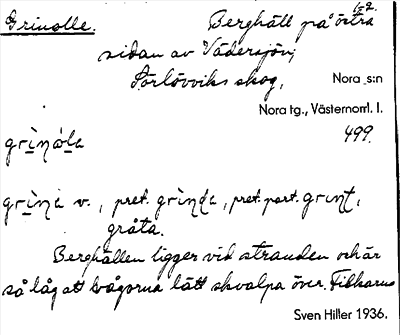 1-2.
Grinolle. Berghäll på östra
sidan av Vädersjön;
Törlövviks skog, Nora s:n
Nora tg., Västernorrl. l.
grìnòla 499.
grìna v., pret. grìnda, pret. part. grìnt,
gråta.
Berghällen ligger vid stranden och är
så låg att vågorna lätt skvalpa över.
Sven Hiller 1936.